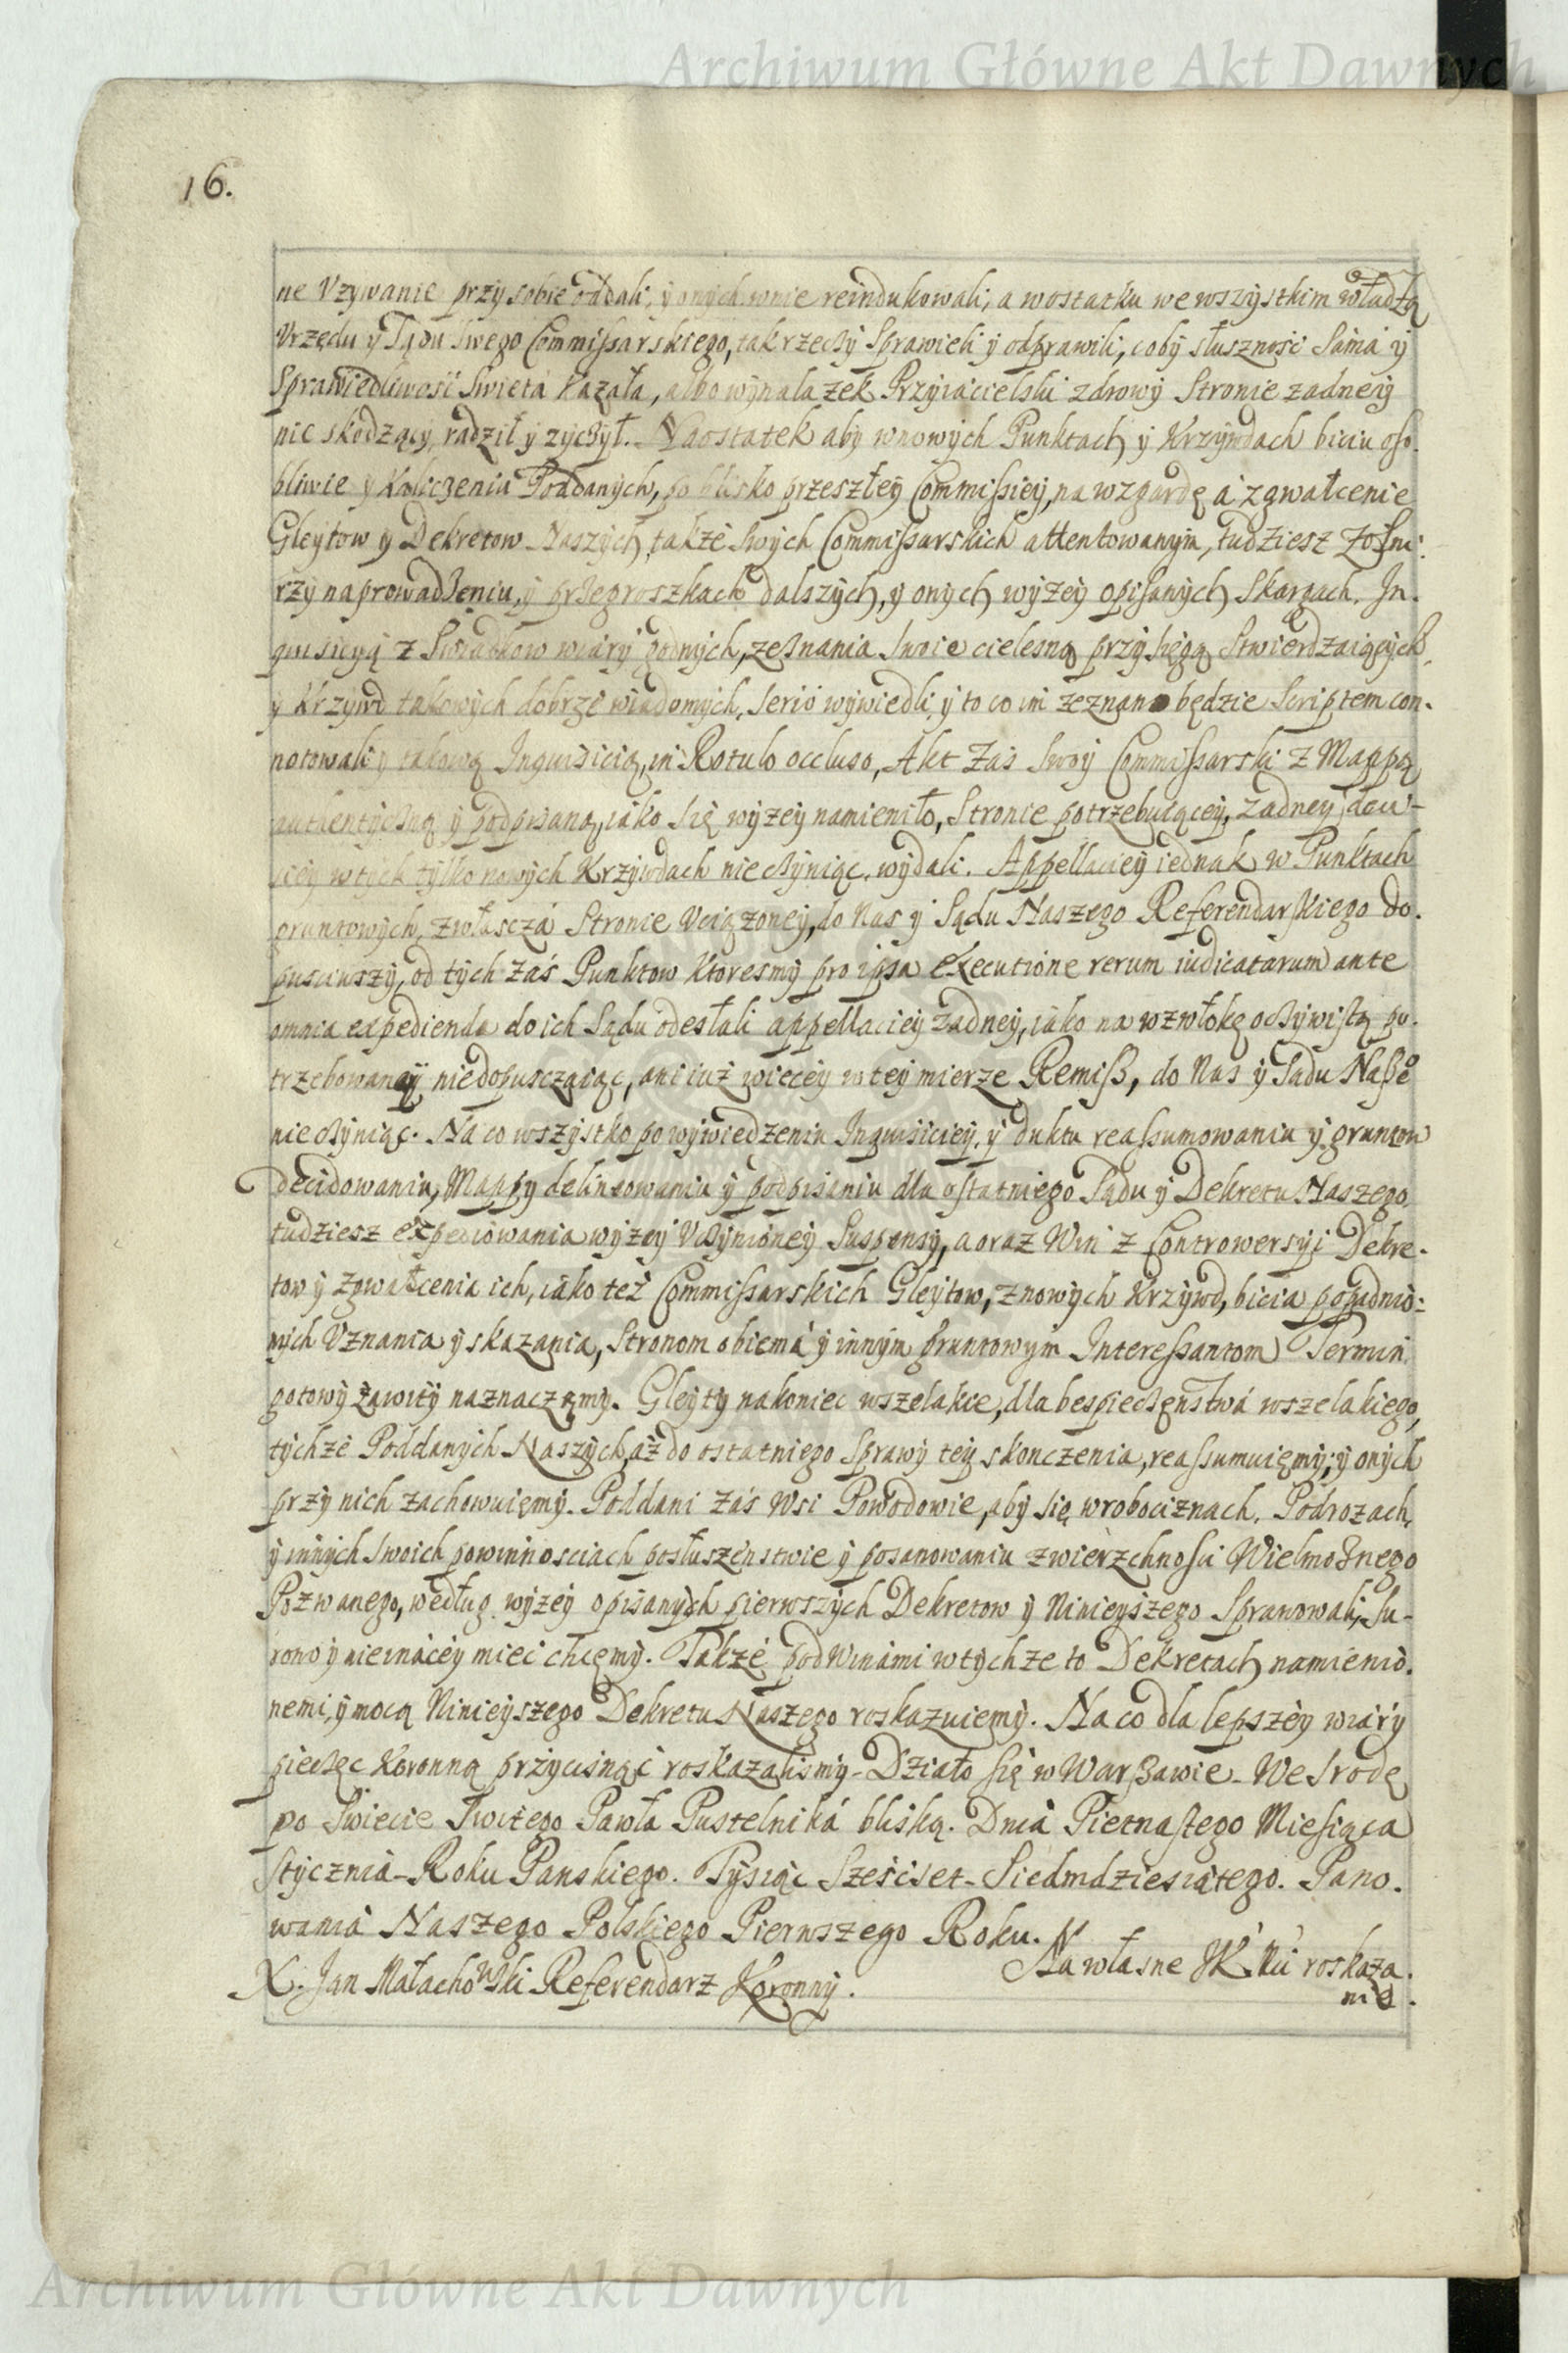 Archiwum Główne Akt Dawnych
16.
ne Vzywanie przy sobie oddali, y onych wnie reindukowali, a wostatku we wszystkim władzą
Vrzędu y Sądu Swego Commissarskiego, tak rzeczy Sprawieli y odprawili, coby słusznosc Sama y
Sprawiedliwosc Swięta kazała, albo wynalazek Przyiacielski zdrowy Stronie zadney
nic skodzący, radził y zyczył. Naostatek aby wnowych Punktach y Krzywdach biciu oso.
bliwie y Kaliczeniu Poddanych, po blisko przeszłey Commissiey, na wzgardę a zgwałcenie
Gleytow y Dekretow Naszych, takze Swych Commissarskich attentowanym, tudziesz Zołni:
rzy naprowadzeniu, y przegroszkach dalszych, y onych wyzey opisanych Skargach. In.
quisicyą z Swiadkow wiary godnych, zeznania swoie cielesną przysięgą Stwierdzaiących
y Krzywd takowych dobrze wiadomych, serio wywiedli, y to co im zeznano będzie Scriptem con.
notowali y takową Inquisicią, in Rotulo occluso, Akt zas swoy Commissarski z Mappą
authentyczną y podpisaną, iako się wyzey namieniło, Stronie potrzebuiącey, zadney decu-
siey wtych tylko nowych Krzywdach nie czyniąc, wydali. Appellaciey iednak w Punktach
gruntowych, zwłascza Stronie Vciązoney, do Nas y Sądu Naszego Referendarskiego do.
pusciwszy, od tych zas Punktow ktoresmy pro ipsa executione rerum iudicatarum ante
omnia expedienda do ich Sądu odesłali appellaciey zadney, iako na wzwłokę oczywistą po.
trzebowaney niedopusczaiąc, ani iuż więcey w tey mierze Remiss, do Nas y Sądu Nasze
nie czyniąc. Na co wszystko po wywiedzeniu Inquisiciey, y duktu reassumowaniu y gruntow
decidowaniu, Mappy delineowaniu y podpisaniu dla ostatniego Sądu y Dekretu Naszego
tudziesz expediowania wyzey Vczynioney Suspensy, a oraz Win z Controwersyi Dekre.
tow y Zgwałcenia ich, iako też Commissarskich Gleytow, z nowych Krzywd, bicia popadnio:
nych Vznania y skazania, Stronom obiema y innym gruntowym Interessantom Termin
gotowy zawity naznaczamy. Gleyty nakoniec wszelakie, dla bespieczęnstwa wszelakiego,
tychze Poddanych Naszych, aż do ostatniego Sprawy tey skonczenia, reassumuięmy, y onych
przy nich zachowuięmy. Poddani zas wsi Powodowie, aby się wrobociznach, Podrozach,
y innych Swoich powinnosciach posłuszenstwie y posanowaniu zwierzchnosci Wielmoznego
Pozwanego, według wyzey opisanych pierwszych Dekretow y Ninieyszego Sprawowali, su-
rowo y nieinaczey miec chcemy. Takze pod winami wtychze to Dekretach namienio.
nemi, y mocą Ninieyszego Dekretu Naszego roskazuiemy. Na co dla lepszey wiary
pieczęc Koronną przycisnąc roskazalismy. Działo się w Warszawie. We Srodę
po Swięcie Swiętego Pawła Pustelnika bliską. Dnia Pietnastego Miesiąca
Stycznia Roku Panskiego. Tysiąc Szescset Siedmdziesiątego. Pano.
wania Naszego Polskiego Pierwszego Roku.
X. Jan Małachowski Referendarz Koronny.
Na własne JK Mci roskaza.
nie.
Archiwum Główne Akt Dawnych